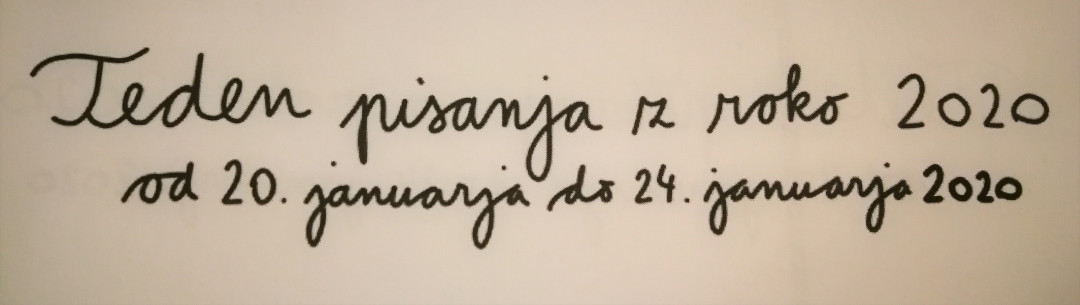 Teden pisanja z roko 2020
od 20. januarja do 24. januarja 2020